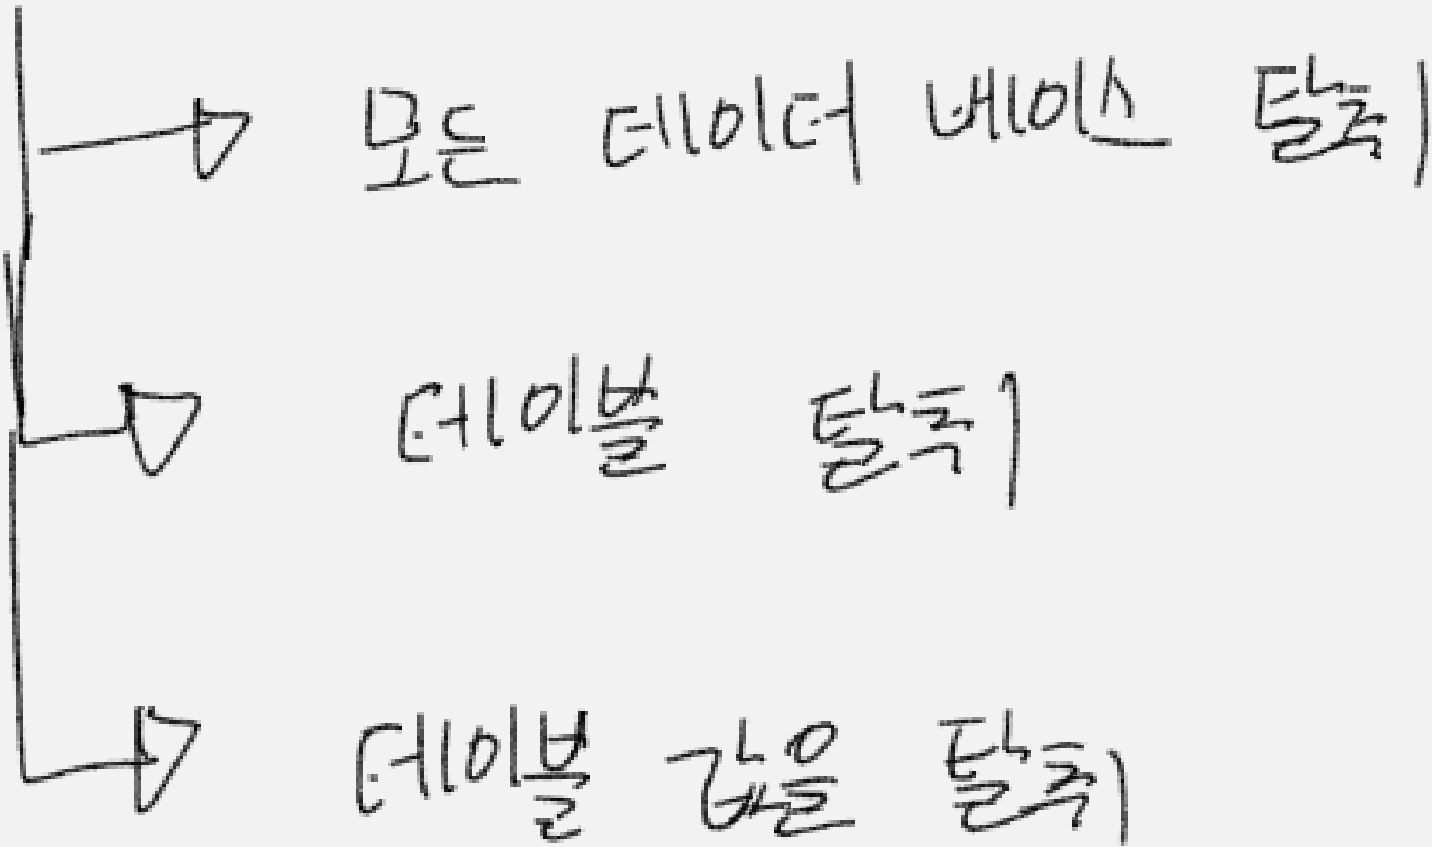 모든 데이터 베이스 탈취
테이블 탈취
테이블 값을 탈취